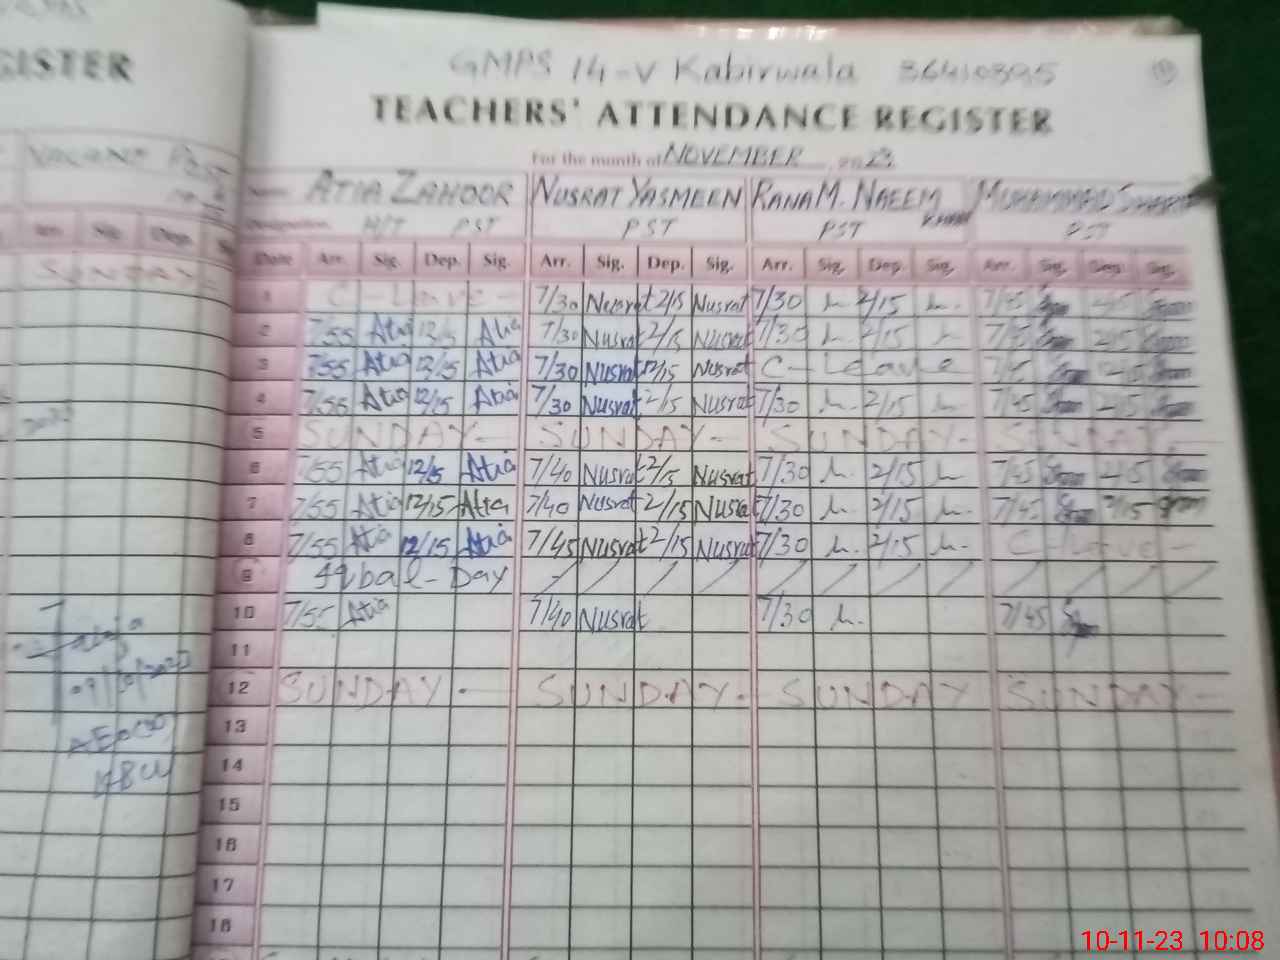 GISTER
VACANT Post
Arr. Sig. Dep. Si
SUNDAY
AEO
KBW
GMPS 14-V Kabirwala 36410395
TEACHERS' ATTENDANCE REGISTER
For the month of NOVEMBER 2023
Name ATIA ZAHOOR NUSRAT YASMEEN RANA M. NAEEM KHAN MUHAMMAD
Designation H/T PST PST PST PST
Date Arr. Sig. Dep. Sig. Arr. Sig. Dep. Sig. Arr. Sig. Dep. Sig. Arr. Sig. Dep. Sig.
1 C-Leave- 7/30 Nusrat 2/15 Nusrat 7/30 2/15 7/45 2/15
2 7/55 Atia 12/15 Atia 7/30 Nusrat 2/15 Nusrat 7/30 2/15 7/45 2/15
3 7/55 Atia 12/15 Atia 7/30 Nusrat 12/15 Nusrat C-Leave 7/45 12/15
4 7/55 Atia 12/15 Atia 7/30 Nusrat 2/15 Nusrat 7/30 2/15 7/45 2/15
5 SUNDAY- SUNDAY- SUNDAY- SUNDAY-
6 7/55 Atia 12/15 Atia 7/40 Nusrat 2/15 Nusrat 7/30 2/15 7/45 2/15
7 7/55 Atia 12/15 Atia 7/40 Nusrat 2/15 Nusrat 7/30 2/15 7/45 2/15
8 7/55 Atia 12/15 Atia 7/45 Nusrat 2/15 Nusrat 7/30 2/15 C-Leave-
9 Iqbal-Day
10 7/55 Atia 7/40 Nusrat 7/30 7/45
11
12 SUNDAY- SUNDAY- SUNDAY SUNDAY-
13
14
15
16
17
18
10-11-23 10:08